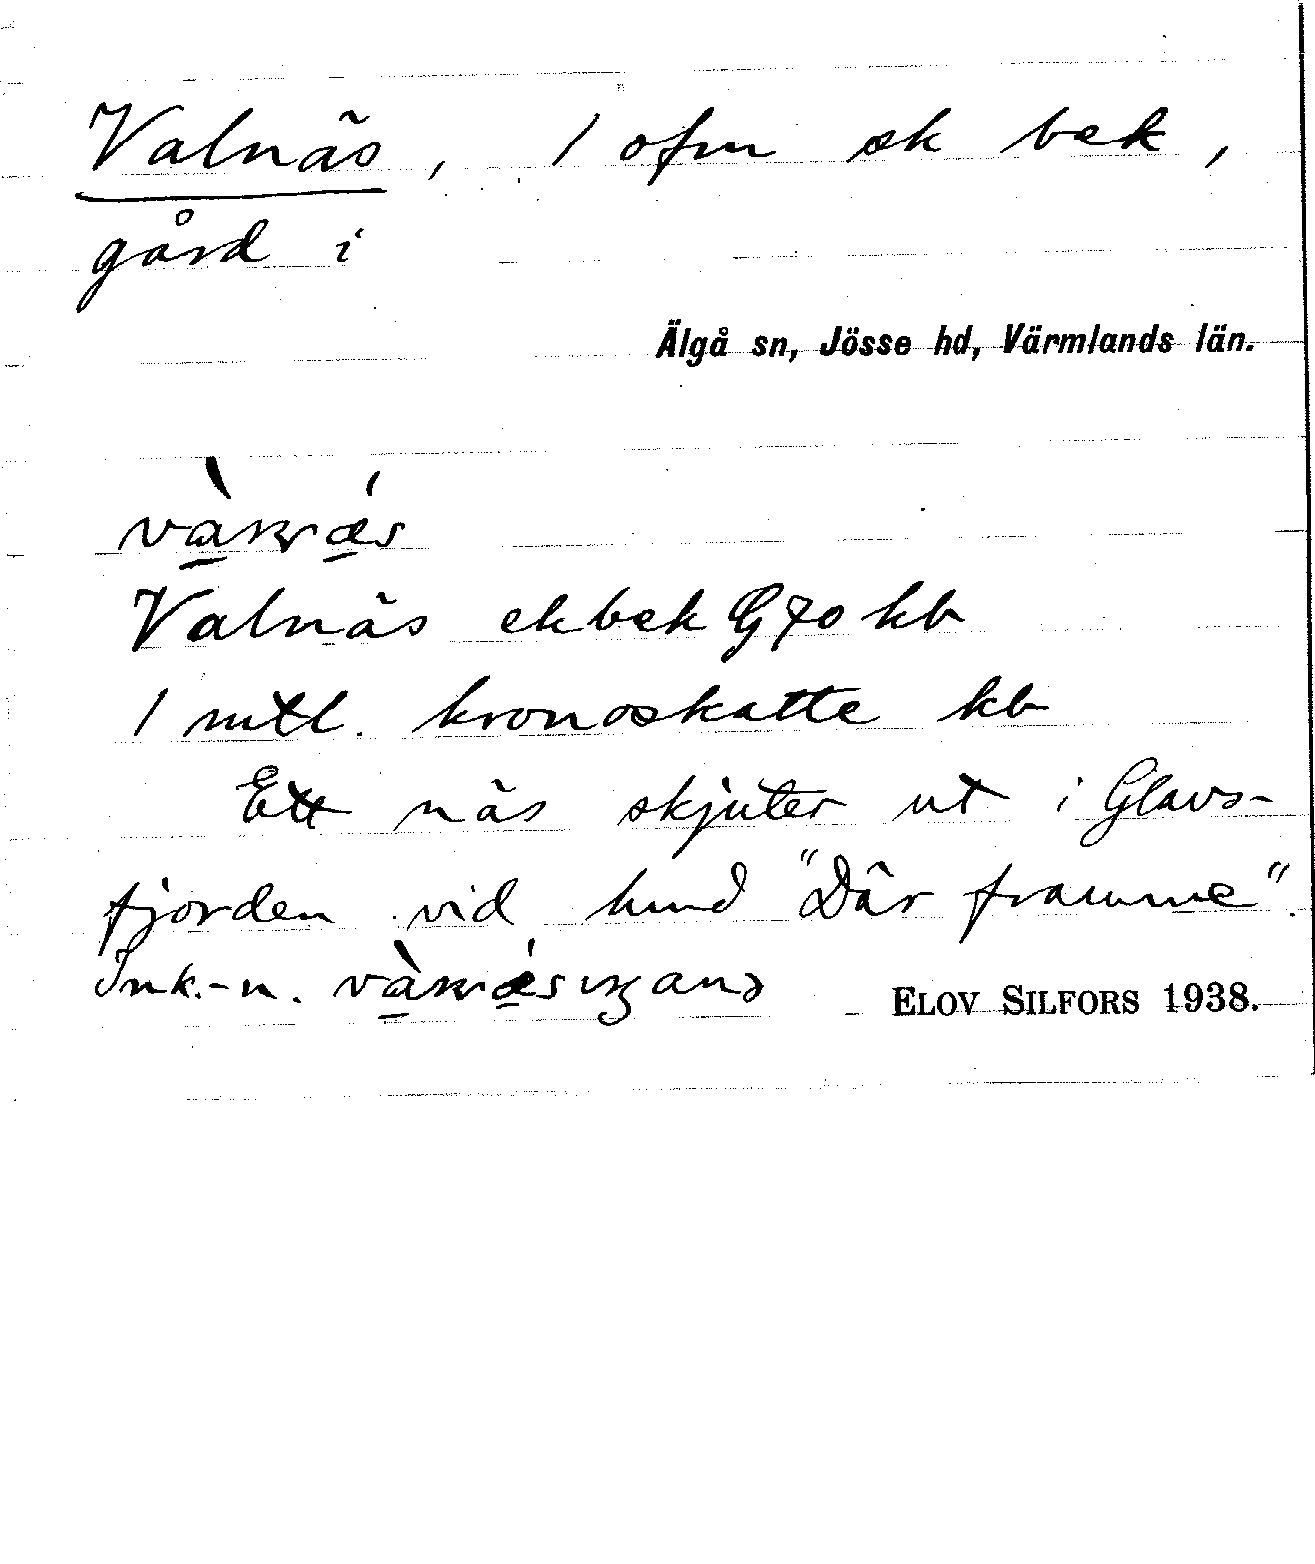 Valnäs, 1 ofm sk bek,
gård i
Älgå sn, Jösse hd, Värmlands län.
Valnäs ekbek G70 kb
1 mtl. kronoskatte kb
Ett näs skjuter ut i Glavs-
fjorden vid hmd "Där framme".
Ink.-n.
ELOV SILFORS 1938.